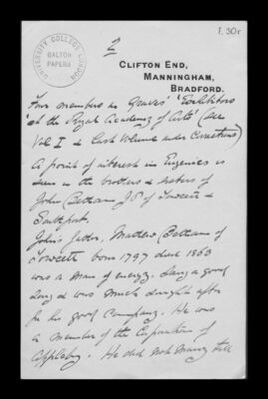 f. 30r
UNIVERSITY COLLEGE LONDON
GALTON
PAPERS
2
CLIFTON END,
MANNINGHAM,
BRADFORD.
Four members in Graves' "Exhibitors
at the Royal Academy of Arts" (see
Vol I & last Volume under Corrections)
A point of interest in Eugenics is
seen in the brothers & sisters of
John Betham J.P. of
Southport.
John's father, Matthew Betham of
born 1797 died 1863
was a man of energy. Sang a good
song & was much sought after
for his good company. He was
a member of the Corporation of
Appleby. He did not marry till